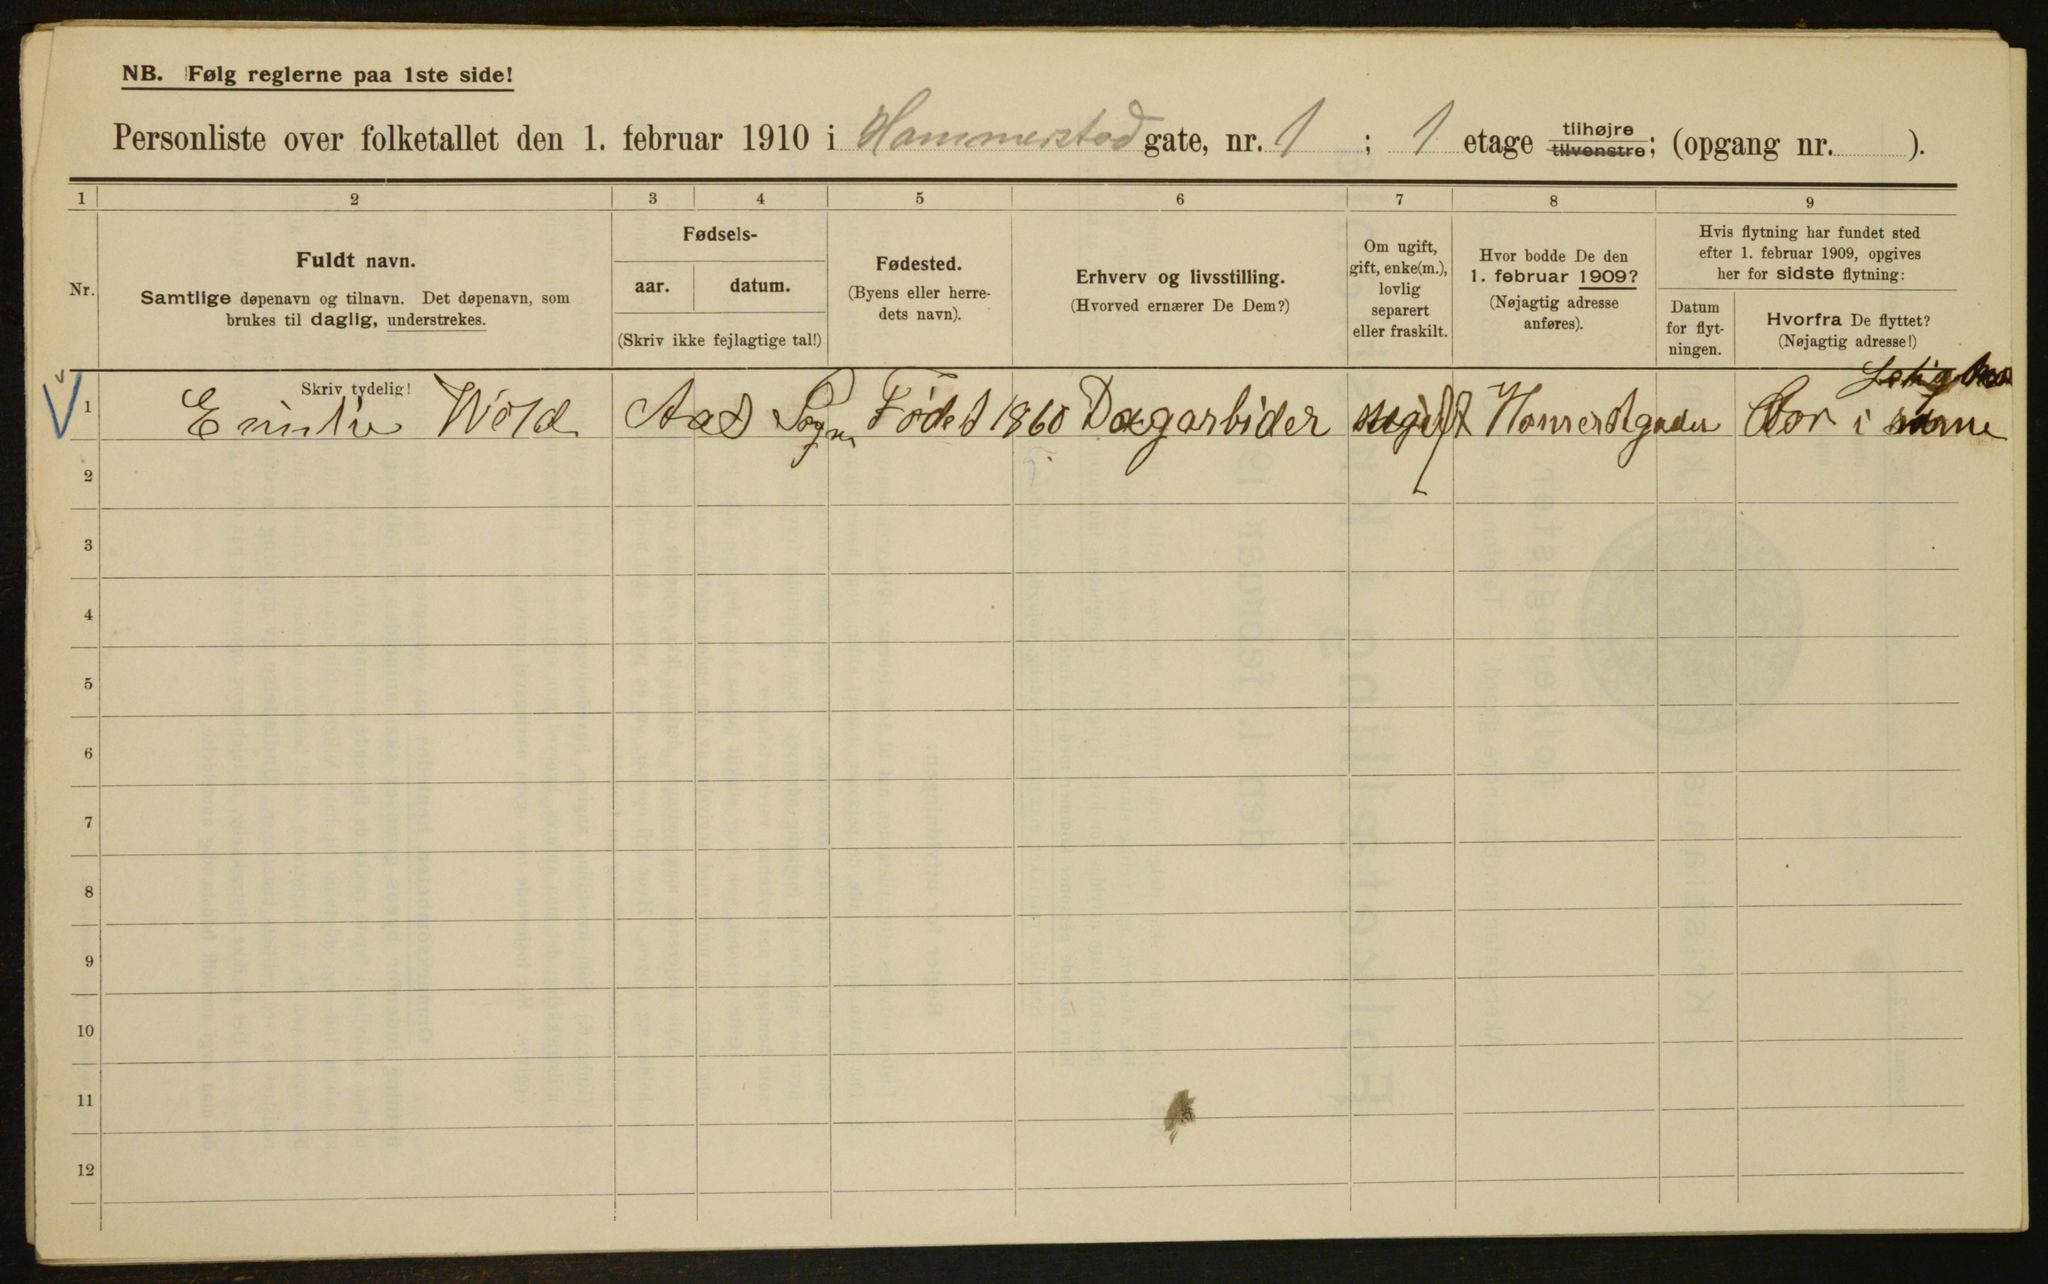 NB. Følg reglerne paa 1ste side!
Personliste over folketallet den 1. februar 1910 i Hammerstad gate, nr. 1 ; 1 etage tilhøjre tilvenstre; (opgang nr. ).
1 2 3 4 5 6 7 8 9
Nr.
Fuldt navn.
Samtlige døpenavn og tilnavn. Det døpenavn, som
brukes til daglig, understrekes.
Fødsels-
aar. datum.
(Skriv ikke fejlagtige tal!)
Fødested.
(Byens eller herre-
dets navn).
Erhverv og livsstilling.
(Hvorved ernærer De Dem?)
Om ugift,
gift, enke(m.),
lovlig
separert
eller fraskilt.
Hvor bodde De den
1. februar 1909?
(Nøjagtig adresse
anføres).
Hvis flytning har fundet sted
efter 1. februar 1909, opgives
her for sidste flytning:
Datum
for flyt-
ningen.
Hvorfra De flyttet?
(Nøjagtig adresse!)
Skriv tydelig!
1 Emilie Wold Aas Sogn Fødet 1860 Dagarbider ugift i
2
3
4
5
6
7
8
9
10
11
12